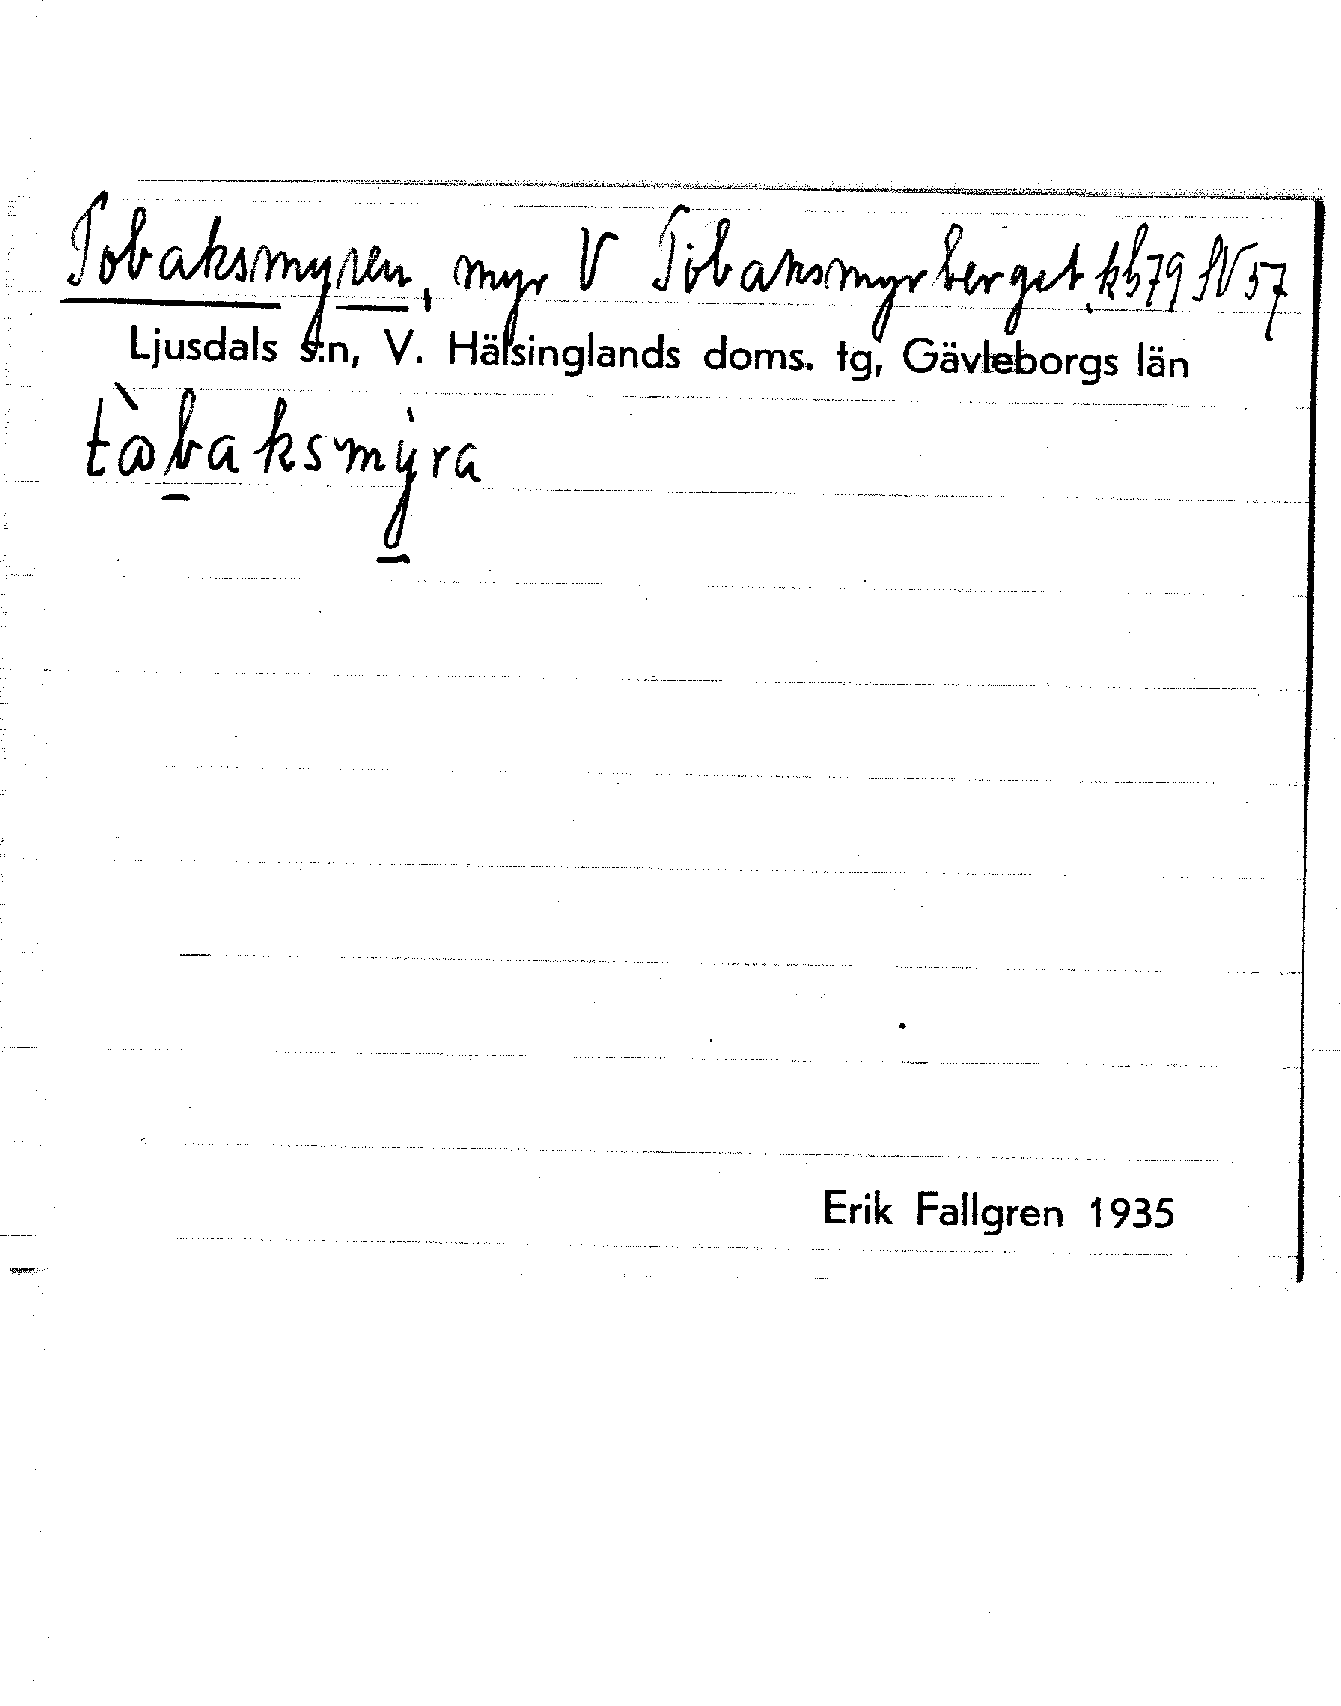 Tobaksmyren, myr V Tobaksmyrberget, kb 79 SV 57
Ljusdals s:n, V. Hälsinglands doms. tg, Gävleborgs län
tàbaksmyra
Erik Fallgren 1935